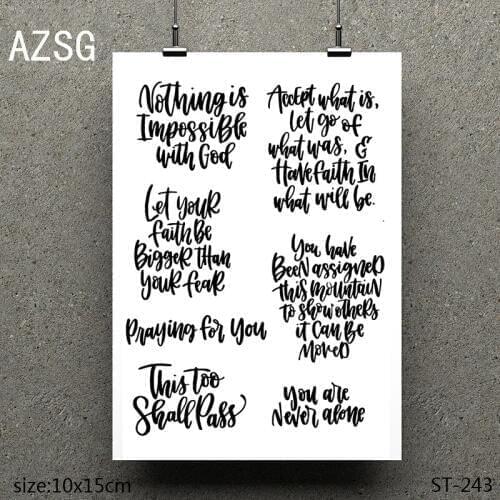 AZSG
Nothing is
Impossible
with God
Let your
faith be
Bigger than
your fear
Praying for you
This too
Shall Pass
Accept what is,
let go of
what was, &
Have faith In
what will be.
You have
Been assigned
this mountain
to show others
it Can Be
Moved
You are
Never alone
size:10x15cm
ST-243